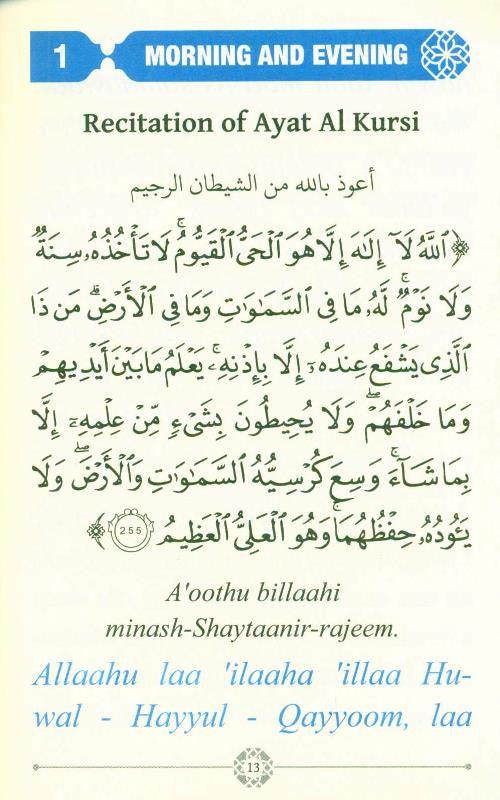 1
MORNING AND EVENING
Recitation of Ayat Al Kursi
أعوذ بالله من الشيطان الرجيم
﴿ٱللَّهُ لَآ إِلَٰهَ إِلَّا هُوَ ٱلْحَىُّ ٱلْقَيُّومُ ۚ لَا تَأْخُذُهُۥ سِنَةٌ
وَلَا نَوْمٌ ۚ لَّهُۥ مَا فِى ٱلسَّمَٰوَٰتِ وَمَا فِى ٱلْأَرْضِ ۗ مَن ذَا
ٱلَّذِى يَشْفَعُ عِندَهُۥٓ إِلَّا بِإِذْنِهِۦ ۚ يَعْلَمُ مَا بَيْنَ أَيْدِيهِمْ
وَمَا خَلْفَهُمْ ۖ وَلَا يُحِيطُونَ بِشَىْءٍ مِّنْ عِلْمِهِۦٓ إِلَّا
بِمَا شَآءَ ۚ وَسِعَ كُرْسِيُّهُ ٱلسَّمَٰوَٰتِ وَٱلْأَرْضَ ۖ وَلَا
يَـُٔودُهُۥ حِفْظُهُمَا ۚ وَهُوَ ٱلْعَلِىُّ ٱلْعَظِيمُ 255﴾
A'oothu billaahi
minash-Shaytaanir-rajeem.
Allaahu laa 'ilaaha 'illaa Hu-
wal - Hayyul - Qayyoom, laa
13